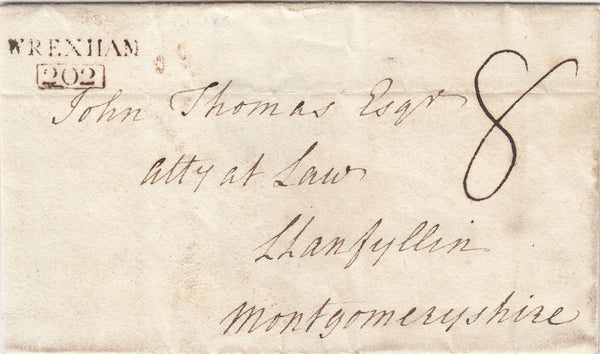 WREXHAM
202
John Thomas Esqr
8
atty at Law
Llanfyllin
Montgomeryshire